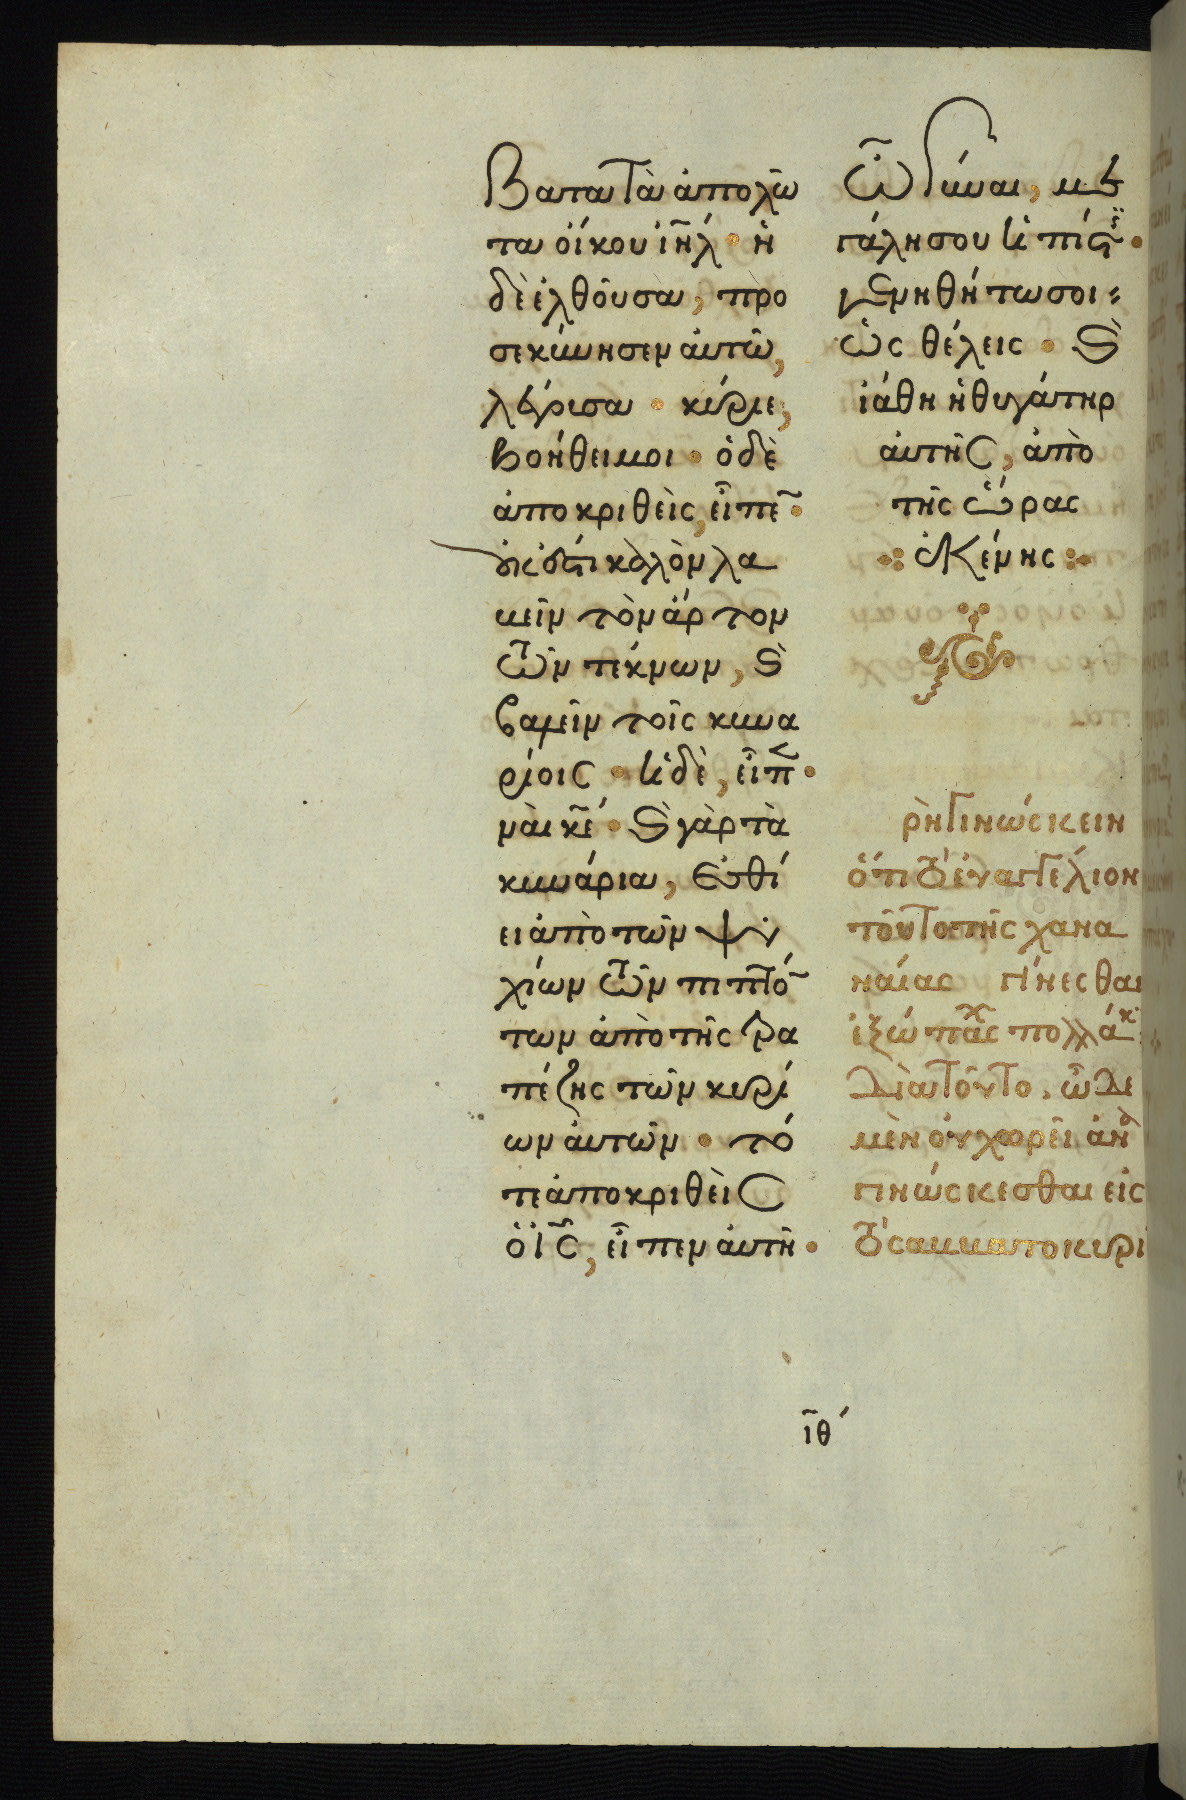 βατα τὰ ἀπολω
τα οἴκου ἰηλ · ἡ
δὲ ἐλθοῦσα, προ
σεκύνησεν αὐτῶ,
λέγουσα · κύριε,
βοήθει μοι · ὁ δὲ
ἀποκριθεὶς, εἶπε ·
οὐκ ἔστι καλὸν λα
βεῖν τὸν ἄρτον
τῶν τέκνων, καὶ
βαλεῖν τοῖς κυνα
ρίοις · ἡ δὲ, εἶπ ·
ναὶ κε · καὶ γὰρ τὰ
κυνάρια, ἐσθί
ει ἀπὸ τῶν ψι
χίων τῶν πιπτό
των ἀπὸ τῆς τρα
πέζης τῶν κυρί
ων αὐτῶν · τό
τε ἀποκριθεὶς
ὁ ις, εἶπεν αὐτῆ ·
ὦ γύναι, με
γάλη σου ἡ πίστις ·
γενηθήτω σοι
ὡς θέλεις · καὶ
ἰάθη ἡ θυγάτηρ
αὐτῆς, ἀπὸ
τῆς ὥρας
ἐκείνης
χρὴ γινώσκειν
ὅτι τὸ εὐαγγέλιον
τοῦτο τῆς χανα
ναίας
πολλάκ
διὰ τοῦτο. ὧδε
μὲν οὐ χωρεῖ ἀν
γινώσκεσθαι εἰς
τὸ σαββατοκυρι
ιθ